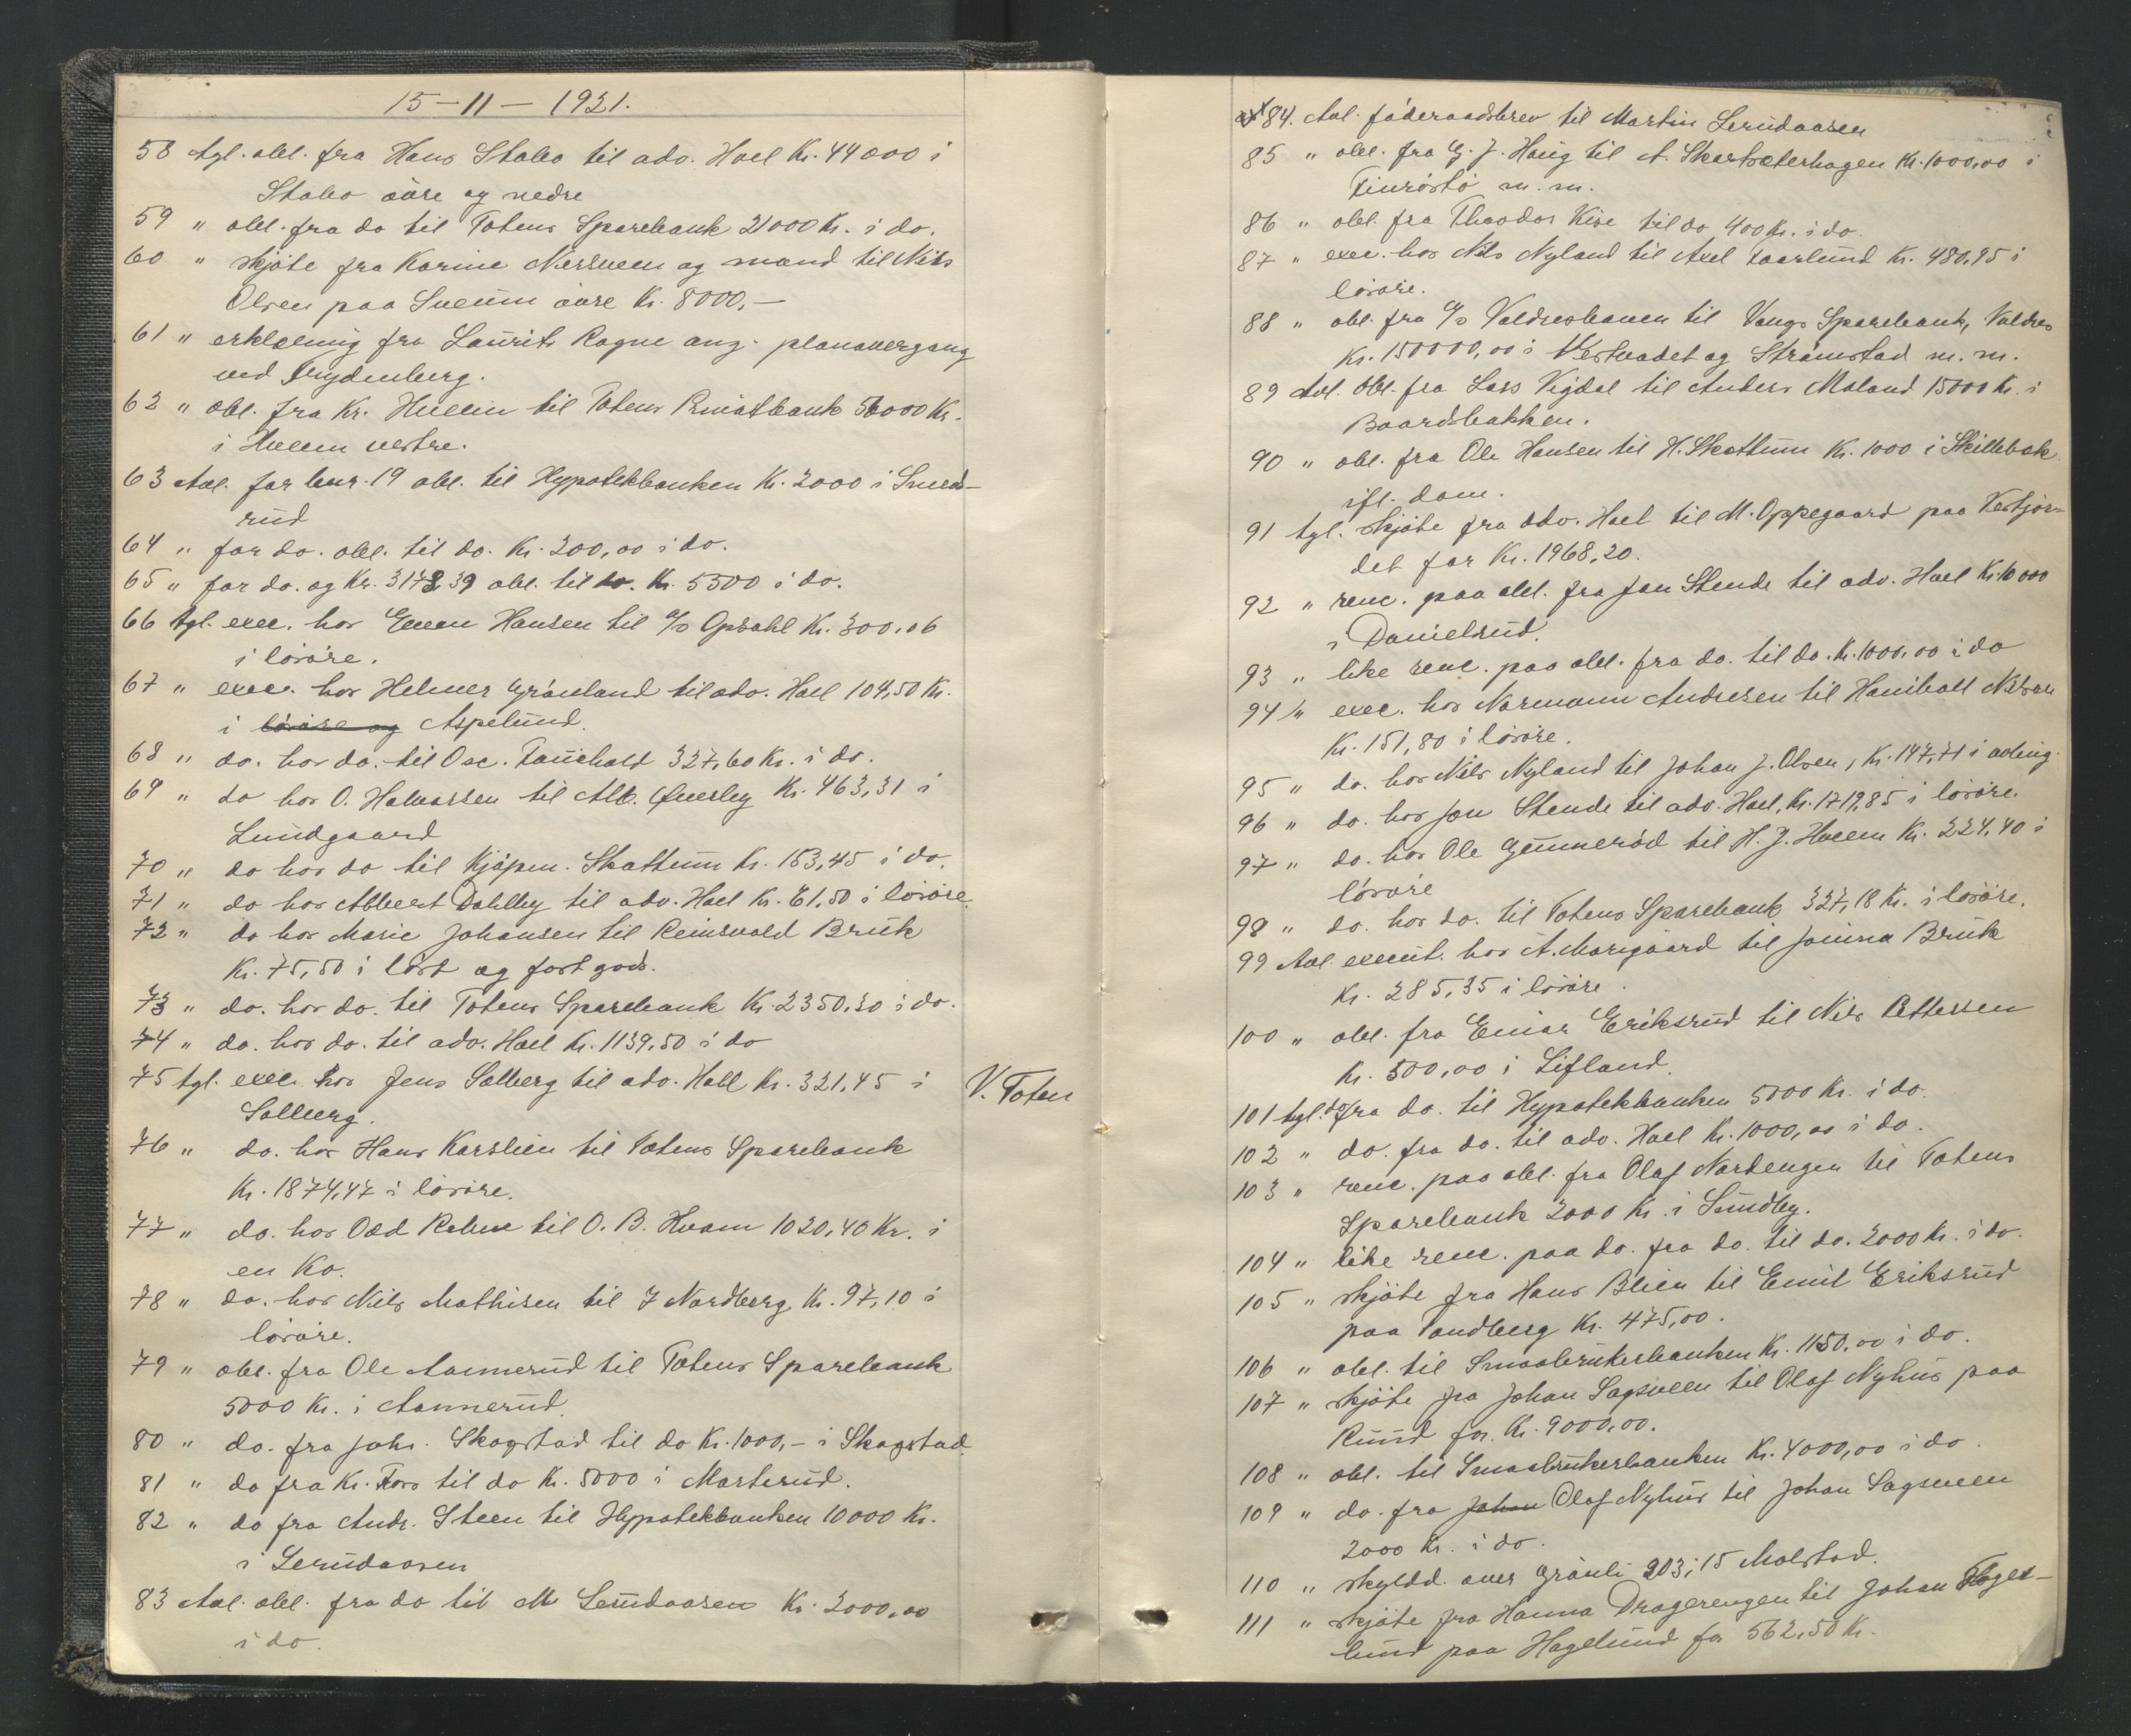 15 - 11 - 1921.
58 tgl. obl. fra Hans Stabo til adv. Hoel Kr. 44000 i
Stabo övre og nedre
59 " obl. fra do til Totens Sparebank 21000 Kr. i do.
60 " skjöte fra Karine Nersveen og mand til Nils
Olsen paa Sveum övre Kr. 8000,-
61 " erklæring fra Laurits Rogne ang. planovergang
ved Frydenberg.
62 " obl. fra Kr. Hveem til Totens Privatbank 56000 Kr.
i Hveem vestre.
63 Avl. for bnr. 19 obl. til Hypotekbanken Kr. 2000 i Smeds-
rud
64 " for do. obl. til do. Kr. 200,00 i do.
65 " for do. og Kr. 3178,39 obl. til do. Kr. 5500 i do.
66 tgl. exec. hos Even Hansen til A/S Opsahl Kr. 300,06
i lösöre.
67 " exec. hos Helmer Grönland til adv. Hoel 104,50 Kr.
i lösöre og Aspelund.
68 " do. hos do. til Osc. Fauchald 327,60 Kr. i do.
69 " do hos O. Halvorsen til Alb. Qverley Kr. 463,31 i
Lundgaard
70 " do hos do til Kjöpm. Skattum Kr. 153,45 i do.
71 " do hos Albert Dahlby til adv. Hoel Kr. 61,50 i lösöre.
72 " do hos Marie Johansen til Reinsvold Bruk
Kr. 75,50 i löst og fast gods.
73 " do. hos do. til Totens Sparebank Kr. 2350,30 i do.
74 " do. hos do. til adv. Hoel Kr. 1139,50 i do
75 tgl. exec. hos Jens Solberg til adv. Hoel Kr. 321,45 i
Solberg.
V. Toten
76 " do. hos Hans Karslien til Totens Sparebank
Kr. 1874,47 i lösöre.
77 " do. hos Odd Rehne til O. B. Hvam 1020,40 Kr. i
en Ko.
78 " do. hos Nils Mathisen til J Nordberg Kr. 97,10 i
lösöre.
79 " obl. fra Ole Aannerud til Totens Sparebank
5000 Kr. i Aannerud.
80 " do. fra Johs. Skogstad til do Kr. 1000,- i Skogstad.
81 " do fra Kr. Foss til do Kr. 5000 i Marterud.
82 " do fra Andr. Steen til Hypotekbanken 10000 Kr.
i Lerudaasen
83 Avl. obl. fra do til M Lerudaasen Kr. 2000,00
i do.
84. Avl. föderaadsbrev til Martin Lerudaasen
85 " obl. fra G. J. Haug til A. Skartsæterhagen Kr. 1000,00 i
Finröstö m. m.
86 " obl. fra Theodor Kise til do 400 Kr. i do.
87 " exec. hos Nils Nyland til Axel Faarlund Kr. 480,95 i
lösöre.
88 " obl. fra A/S Valdresbanen til Vangs Sparebank, Valdres
Kr. 150000,00 i Vestvadet og Strömstad m. m.
89 Avl. obl. fra Lars Vigdal til Anders Moland 15000 Kr. i
Baardsbakken.
90 " obl. fra Ole Hansen til H. Skattum Kr. 1000 i Skillebæk
ifl. dom.
91 tgl. skjöte fra adv. Hoel til M. Oppegaard paa Vestjor-
det for Kr. 1968,20.
92 " renc. paa obl. fra Jon Stende til adv. Hoel Kr. 10 000
i Danielsrud.
93 " like renc. paa obl. fra do. til do. Kr. 1000,00 i do
94 " exec. hos Normann Andresen til Haniball Nilsen
Kr. 151,80 i lösöre.
95 " do. hos Nils Nyland til Johan J. Olsen, Kr. 147,71 i avling.
96 " do. hos Jon Stende til adv. Hoel, Kr. 1719,85 i lösöre.
97 " do. hos Ole Gunneröd til H. J. Hveem Kr. 224,40 i
lösöre
98 " do. hos do. til Totens Sparebank 327,18 Kr. i lösöre.
99 Avl. execut. hos A. Marigaard til Jonina Bruk
Kr. 285,35 i lösöre.
100 " obl. fra Einar Eriksrud til Nils Pettersen
Kr. 500,00 i Lifland.
101 tgl. do fra do. til Hypotekbanken 5000 Kr. i do.
102 " do. fra do. til adv. Hoel Kr. 1000,00 i do.
103 " renc. paa obl. fra Olaf Nordengen til Totens
Sparebank 2000 Kr. i Sundby.
104 " like renc. paa do. fra do. til do. 2000 Kr. i do.
105 " skjöte fra Hans Blien til Emil Eriksrud
paa Sandberg Kr. 475,00.
106 " obl. til Smaabrukerbanken Kr. 1150,00 i do.
107 " skjöte fra Johan Sagsveen til Olaf Nyhus paa
Rund for Kr. 9000,00.
108 " obl. til Smaabrukerbanken Kr. 4000,00 i do.
109 " do. fra Johan Olaf Nyhus til Johan Sagsveen
2000 Kr. i do.
110 " skyldd. over Grönli 203,15 Molstad.
111 " skjöte fra Hanna Dragerengen til Johan Hage-
lund paa Hagelund for 562,50 Kr.